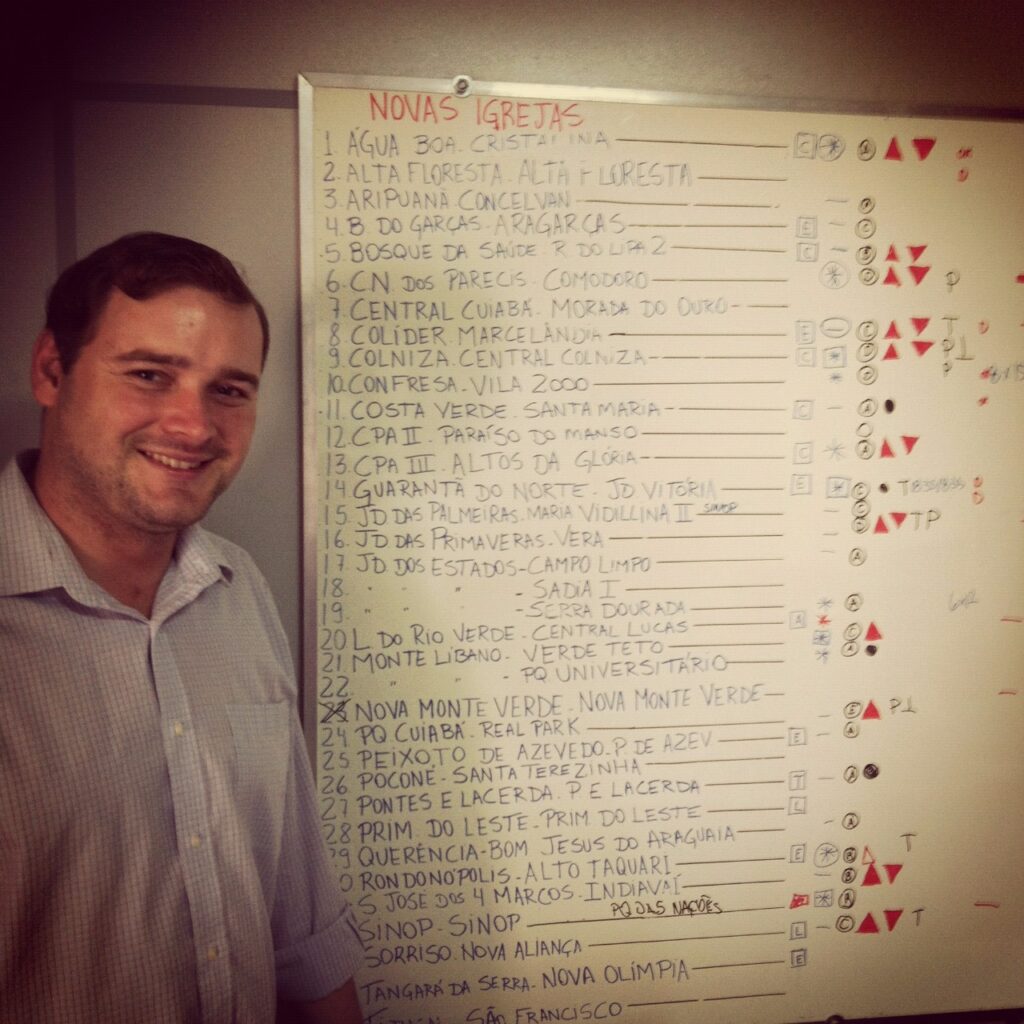 NOVAS IGREJAS
1. ÁGUA BOA. CRISTALINA C * D
2. ALTA FLORESTA. ALTA FLORESTA
3. ARIPUANÃ. CONCELVAN
4. B. DO GARÇAS. ARAGARÇAS E C
5. BOSQUE DA SAÚDE. R. DO LIPA 2 C
6. CN. DOS PARECIS. COMODORO * P
7. CENTRAL CUIABÁ. MORADA DO OURO
8. COLÍDER. MARCELÂNDIA E C T
9. COLNIZA. CENTRAL COLNIZA C * P
10. CONFRESA. VILA 2000 * P
11. COSTA VERDE. SANTA MARIA C A
12. CPA II. PARAÍSO DO MANSO
13. CPA III. ALTOS DA GLÓRIA C * A
14 GUARANTÃ DO NORTE. JD VITÓRIA E * C T
15. JD DAS PALMEIRAS. MARIA VIDILLINA II SINOP C
16. JD DAS PRIMAVERAS. VERA TP
17. JD DOS ESTADOS-CAMPO LIMPO A
18. " " " - SADIA I
19. " " " - SERRA DOURADA * A
20 L. DO RIO VERDE - CENTRAL LUCAS A * C
21. MONTE LÍBANO - VERDE TETO * A
22. " " - PQ UNIVERSITÁRIO
23 NOVA MONTE VERDE. NOVA MONTE VERDE E
24 PQ CUIABÁ. REAL PARK E A
25 PEIXOTO DE AZEVEDO. P. DE AZEV
26 POCONÉ - SANTA TEREZINHA T A
27 PONTES E LACERDA. P E LACERDA L
28 PRIM. DO LESTE - PRIM DO LESTE A
29 QUERÊNCIA - BOM JESUS DO ARAGUAIA E * B T
0 RONDONÓPOLIS - ALTO TAQUARI B
S. JOSÉ DOS 4 MARCOS - INDIAVAÍ * A
SINOP - SINOP PQ DAS NAÇÕES L C T
SORRISO. NOVA ALIANÇA E
TANGARÁ DA SERRA. NOVA OLÍMPIA
SÃO FRANCISCO